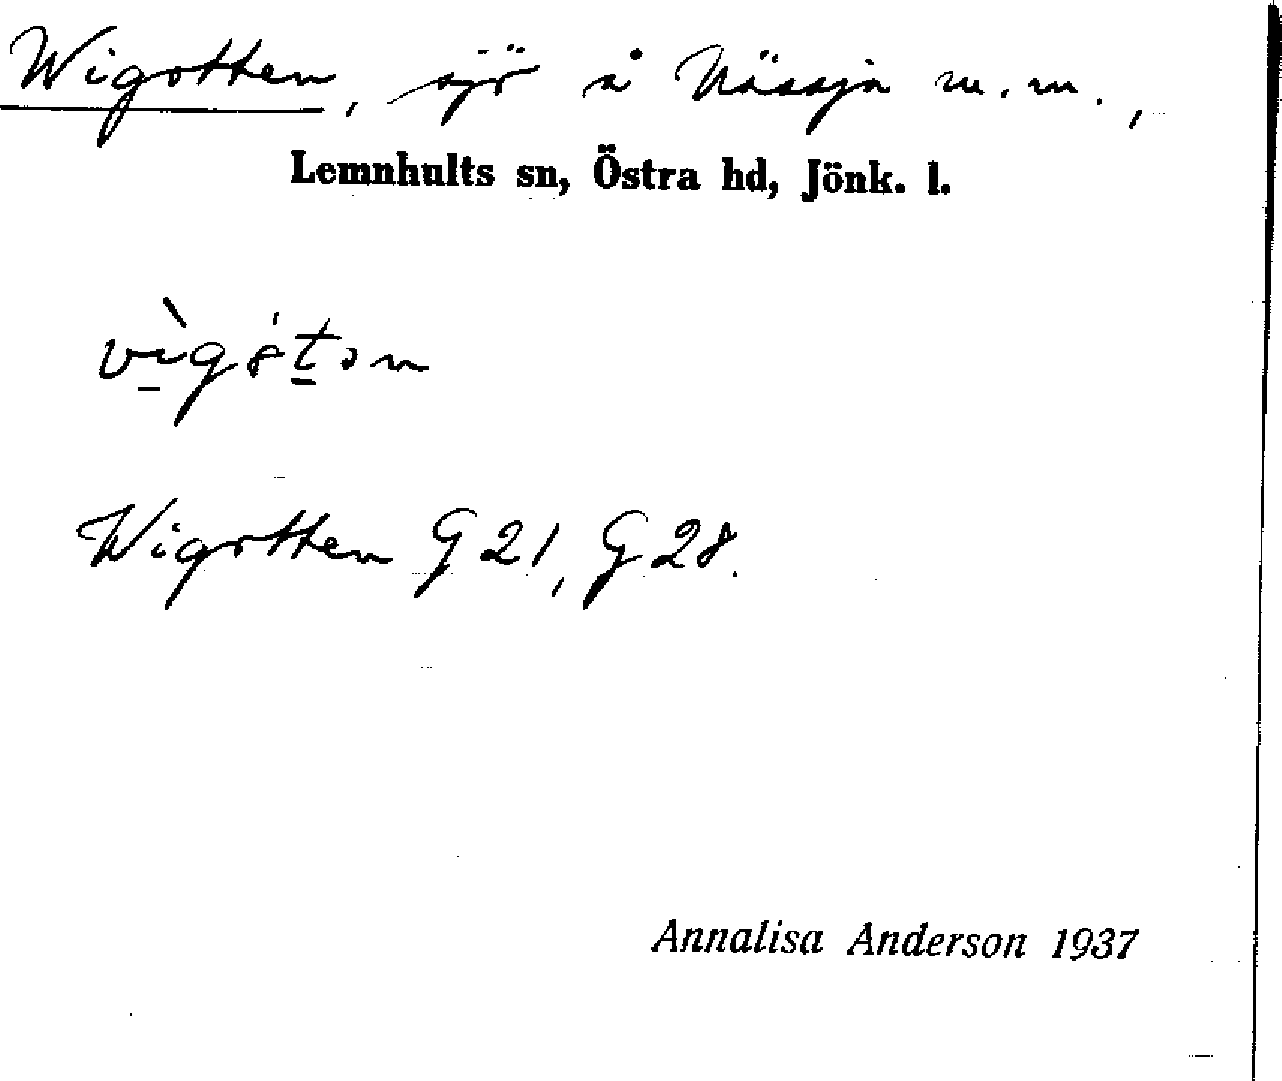 Wigotten, sjö å Nässja m.m.,
Lemnhults sn, Östra hd, Jönk. l.
Wigotten G 21, G 28.
Annalisa Anderson 1937